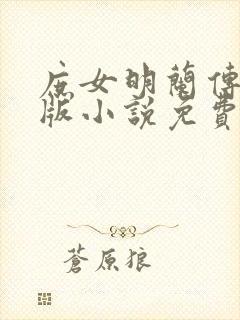 庶女明蘭傳
版小說免費
蒼原狼